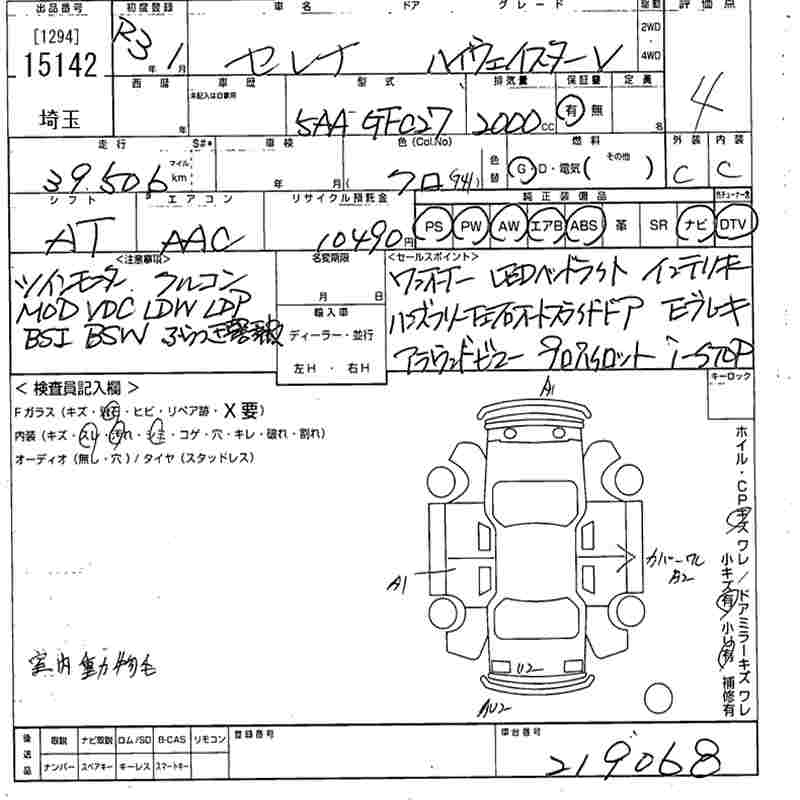 出品番号 初度登録 車名 ドア グレード 駆動 評価点
[1294]
15142
R3 年 1 月
セレナ ハイウェイスターV
2WD
・
4WD
4
埼玉
西暦 年
車歴
未記入は自家用
型式
5AA GFC27
排気量
2000 cc
保証書
有 無
定員 名
走行 S#*
39.506 マイル km
車検 年 月(
色(Col.No)
クロ (G41)
色替
燃料
G・D・電気( その他 )
外装 C
内装 C
シフト AT
エアコン AAC
リサイクル預託金
10490円
純正装備品
PS PW AW エアB ABS 革 SR ナビ DTV
<注意事項>
ツインモーター フルコン
MOD VDC LDW LDP
BSI BSW ふらつき警報
名変期限
月 日
輸入車
ディーラー・並行
左H ・ 右H
<セールスポイント>
ワンオーナー LEDヘッドライト インテリキー
ハンズフリー左右オートスライドドア Eブレーキ
アラウンドビュー プロパイロット i-STOP
キーロック
< 検査員記入欄 >
Fガラス (キズ・飛石・ヒビ・リペア跡・X要)
内装 (キズ・スレ・汚れ・シミ・コゲ・穴・キレ・破れ・割れ)
オーディオ (無し・穴) / タイヤ (スタッドレス)
A1
A1
カバーワレ
A2
U2
AU2
ホイル・CPキズ ワレ / ドアミラーキズ ワレ
小キズ有 小凹有 補修有
室内動物毛
後送品
取説 ナビ取説 ロム/SD B-CAS リモコン
ナンバー スペアキー キーレス スマートキー
登録番号
車台番号
219068